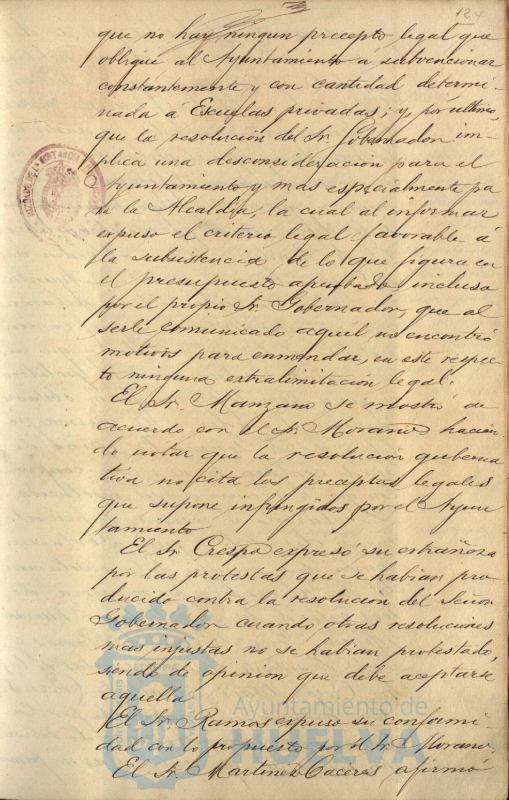 124
que no hay ningun precepto legal que
oblique al Ayuntamiento a subvencionar
constantemente y con cantidad determi-
nada á Escuelas privadas; y, por ultimo,
que la resolución del Sr. Gobernador im-
plica una desconsideración para el
Ayuntamiento y mas especialmente pa
ra la Alcaldía, la cual al informar
expuso el criterio legal favorable á
la subsistencia de lo que figura en
el presupuesto aprobado incluso
por el propio Sr. Gobernador, que al
serle comunicado aquel no encontró
motivos para enmendar, en este respec-
to ninguna extralimitación legal.
El Sr. Manzano se mostró de
acuerdo con el Sr. Morano hacien-
do notar que la resolución guberna
tiva no cita los preceptos legales
que supone infringidos por el Ayun
tamiento
El Sr. Crespo expresó su extrañeza
por las protestas que se habian pro
ducido contra la resolución del Señor
Gobernador cuando otras resoluciones
mas injustas no se habian protestado,
siendo de opinion que debe aceptarse
aquella
El Sr. Ramos expuso su conformi-
dad con lo propuesto por el Sr. Morano.
El Sr. Martinez Caceres afirmó
Ayuntamiento de
HUELVA